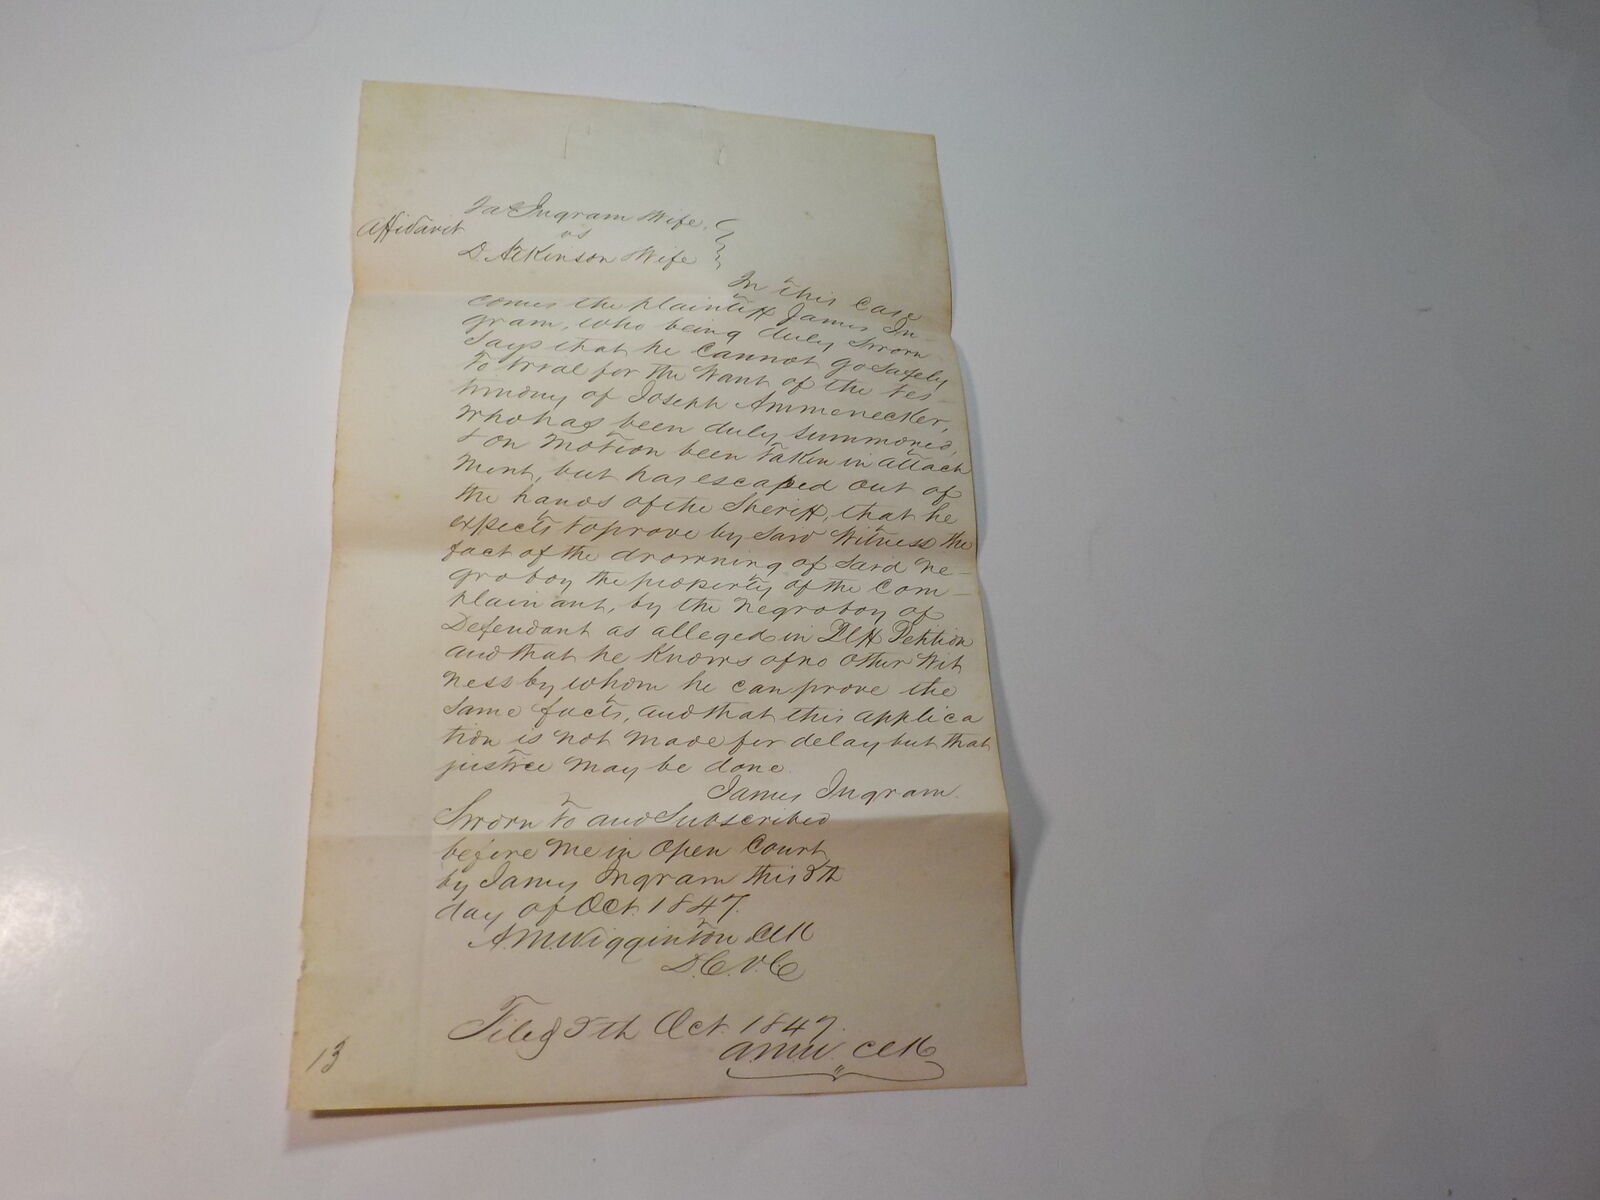 Jas Ingram Wife
Affidavit vs
D. Atkinson Wife
In this Case
comes the plaintiff James In-
gram, who being duly Sworn
Says that he Cannot go safely
to trial for the want of the tes-
timony of Joseph Ammenecker,
who has been duly summoned,
& on motion been taken in attach
ment, but has escaped out of
the hands of the Sheriff, that he
expects to prove by Said Witness the
fact of the drowning of Said Ne-
gro boy the property of the Com-
plainant, by the Negro boy of
Defendant as alleged in Plff Petition
and that he Knows of no other Wit
ness by whom he can prove the
Same facts, and that this applica
tion is not made for delay but that
justice may be done.
James Ingram.
Sworn to and Subscribed
before me in Open Court
by James Ingram this 8th
day of Oct. 1847.
A.M. Wigginton Clk
D.C.V.C
Filed 8th Oct. 1847.
A.M.W. Clk
13